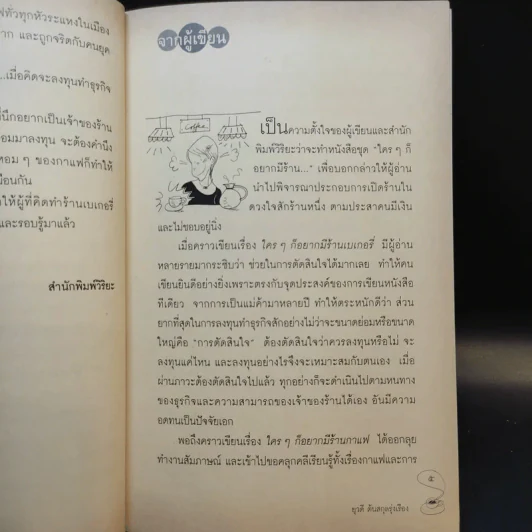 ทั่วทุกหัวระแหงในเมือง
และถูกจริตกับคนยุค
...เมื่อคิดจะลงทุนทำธุรกิจ
นึกอยากเป็นเจ้าของร้าน
มาลงทุน จะต้องคำนึง
หอม ๆ ของกาแฟก็ทำให้
ให้ผู้ที่คิดทำร้านเบเกอรี่
และรอบรู้มาแล้ว
สำนักพิมพ์วิริยะ
จากผู้เขียน
Coffee
เป็นความตั้งใจของผู้เขียนและสำนัก
พิมพ์วิริยะว่าจะทำหนังสือชุด "ใคร ๆ ก็
อยากมีร้าน..." เพื่อบอกกล่าวให้ผู้อ่าน
นำไปพิจารณาประกอบการเปิดร้านใน
ดวงใจสักร้านหนึ่ง ตามประสาคนมีเงิน
และไม่ชอบอยู่นิ่ง
เมื่อคราวเขียนเรื่อง ใคร ๆ ก็อยากมีร้านเบเกอรี่ มีผู้อ่าน
หลายรายมากระซิบว่า ช่วยในการตัดสินใจได้มากเลย ทำให้คน
เขียนยินดีอย่างยิ่งเพราะตรงกับจุดประสงค์ของการเขียนหนังสือ
ทีเดียว จากการเป็นแม่ค้ามาหลายปี ทำให้ตระหนักดีว่า ส่วน
ยากที่สุดในการลงทุนทำธุรกิจสักอย่างไม่ว่าจะขนาดย่อมหรือขนาด
ใหญ่คือ "การตัดสินใจ" ต้องตัดสินใจว่าควรลงทุนหรือไม่ จะ
ลงทุนแค่ไหน และลงทุนอย่างไรจึงจะเหมาะสมกับตนเอง เมื่อ
ผ่านภาวะต้องตัดสินใจไปแล้ว ทุกอย่างก็จะดำเนินไปตามหนทาง
ของธุรกิจและความสามารถของเจ้าของร้านได้เอง อันมีความ
อดทนเป็นปัจจัยเอก
พอถึงคราวเขียนเรื่อง ใคร ๆ ก็อยากมีร้านกาแฟ ได้ออกลุย
ทำงานสัมภาษณ์ และเข้าไปขอคลุกคลีเรียนรู้ทั้งเรื่องกาแฟและการ
๕
ยุวดี ตันสกุลรุ่งเรือง